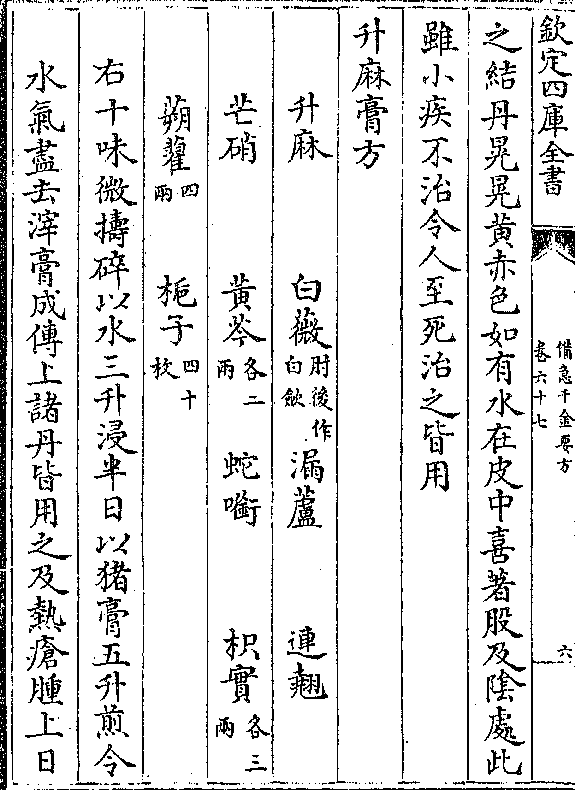 欽定四庫全書
備急千金要方
卷六十七
六
之結丹晃晃黄赤色如有水在皮中喜著股及陰處此
雖小疾不治令人至死治之皆用
升麻膏方
升麻 白薇肘後作白斂 漏蘆 連翹
芒硝 黄芩各二兩 蛇㘅 枳實各三兩
蒴藋四兩 梔子四十枚
右十味微擣碎以水三升浸半日以猪膏五升煎令
水氣盡去滓膏成傅上諸丹皆用之及熱瘡腫上日